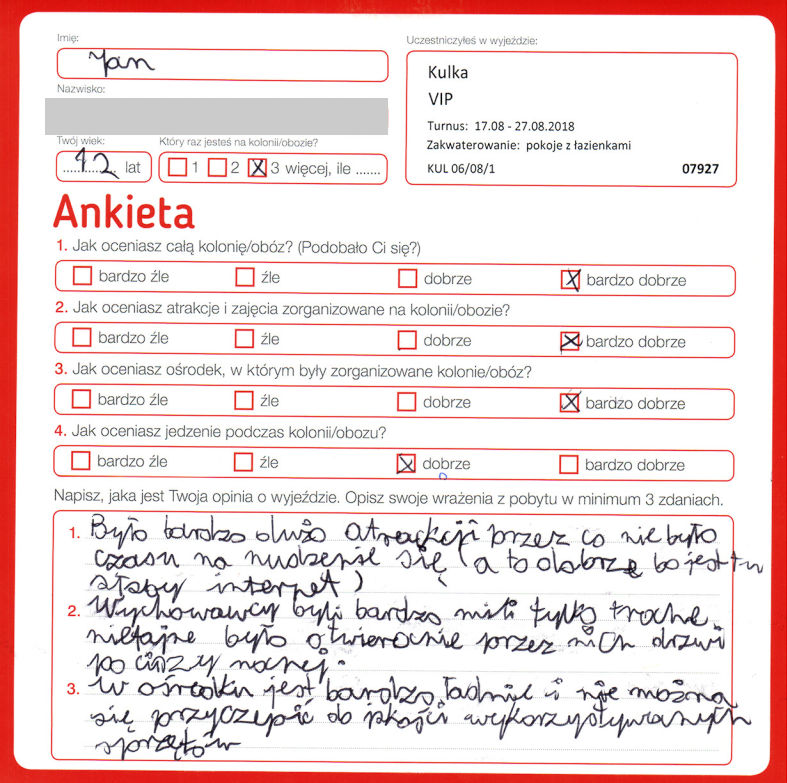 Imię:
Jan
Nazwisko:
Twój wiek:
12 lat
Który raz jesteś na kolonii/obozie?
1 2 3 więcej, ile .......
Uczestniczyłeś w wyjeździe:
Kulka
VIP
Turnus: 17.08 - 27.08.2018
Zakwaterowanie: pokoje z łazienkami
KUL 06/08/1 07927
Ankieta
1. Jak oceniasz całą kolonię/obóz? (Podobało Ci się?)
bardzo źle źle dobrze bardzo dobrze
2. Jak oceniasz atrakcje i zajęcia zorganizowane na kolonii/obozie?
bardzo źle źle dobrze bardzo dobrze
3. Jak oceniasz ośrodek, w którym były zorganizowane kolonie/obóz?
bardzo źle źle dobrze bardzo dobrze
4. Jak oceniasz jedzenie podczas kolonii/obozu?
bardzo źle źle dobrze bardzo dobrze
Napisz, jaka jest Twoja opinia o wyjeździe. Opisz swoje wrażenia z pobytu w minimum 3 zdaniach.
1. Było bardzo dużo atrackcji przez co nie było
czasu na nudzenie się (a to dobrze bo jest tu
słaby internet)
2. Wychowawcy byli bardzo mili tylko trochę
niefajne było otwieranie przez nich drzwi
po ciszy nocnej.
3. W ośrodku jest bardzo ładnie i nie można
się przyczepić do jakości wykorzystywanych
sprzętów